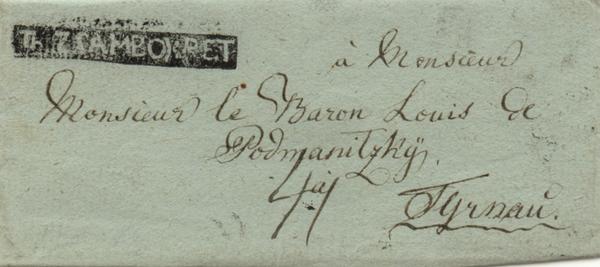 Th. ZSAMBOKRET
à Monsieur
Monsieur le Baron Louis de
Podmanitzkÿ.
à
4
Tÿrnau.